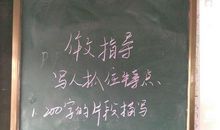 作文指导
写人抓住特点
1.200字的片段描写